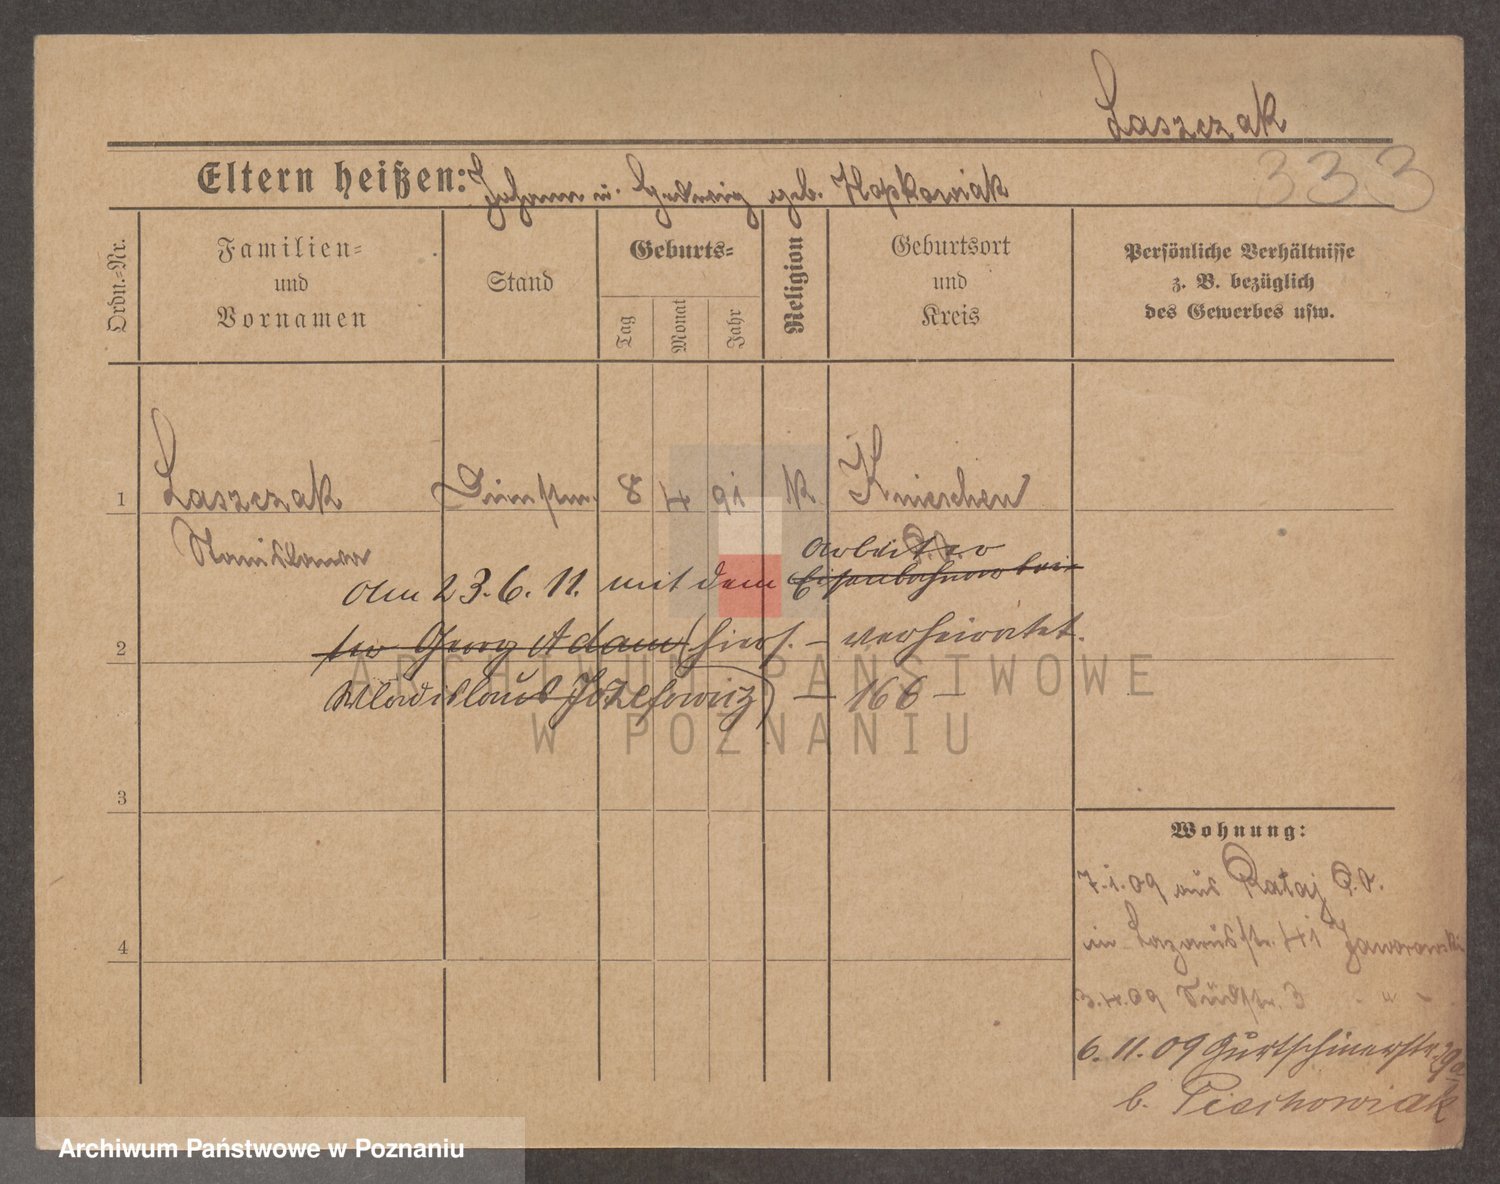 Laszczak
333
Eltern heißen: Johann u. Hedwig geb. Kopkowiak
Ordn.=Nr.
Familien=
und
Vornamen
Stand
Geburts=
Tag
Monat
Jahr
Religion
Geburtsort
und
Kreis
Persönliche Verhältnisse
z. B. bezüglich
des Gewerbes usw.
1 Laszczak Dienstm. 8 4 91 K
Stanislawa
Arbeiter
Am 23.6.11. mit dem Eisenbahnarbei=
ter Georg Adam hiers. – verheiratet.
2
Wladislaus Józefowicz) – 166 –
3
Wohnung:
7.1.09 aus Rataj P.O.
4
in Lazarusstr. 41 Jaworowski
3.4.09 Südstr. 3 - " -
6.11.09 Gurtschinerstr. 29a
b. Piechowiak
ARCHIWUM PAŃSTWOWE
W POZNANIU
Archiwum Państwowe w Poznaniu